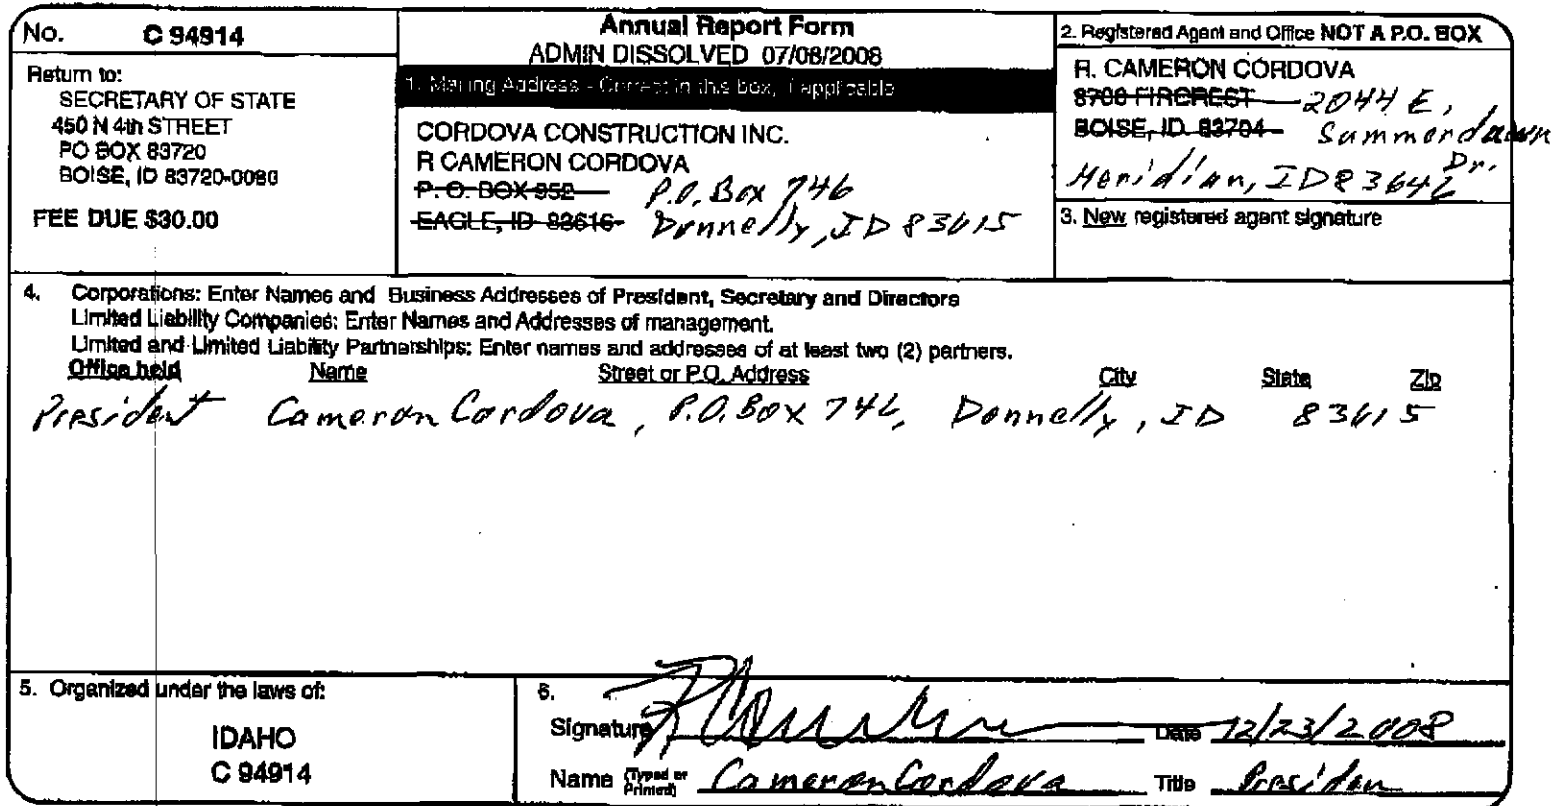 No. C 94914
Return to:
SECRETARY OF STATE
450 N 4th STREET
PO BOX 83720
BOISE, ID 83720-0080
FEE DUE $30.00
Annual Report Form
ADMIN DISSOLVED 07/08/2008
1. Mailing Address - Correct in this box, if applicable
CORDOVA CONSTRUCTION INC.
R CAMERON CORDOVA
P. O. BOX 952 P.O. Box 746
EAGLE, ID 83616 Donnelly, ID 83615
2. Registered Agent and Office NOT A P.O. BOX
R. CAMERON CORDOVA
8700 FIRCREST 2044 E.
BOISE, ID 83704 Summerdawn
Dr.
Meridian, ID 83642
3. New registered agent signature
4. Corporations: Enter Names and Business Addresses of President, Secretary and Directors
Limited Liability Companies: Enter Names and Addresses of management.
Limited and Limited Liability Partnerships: Enter names and addresses of at least two (2) partners.
Office held Name Street or P.O. Address City State Zip
President Cameron Cordova, P.O. Box 746, Donnelly, ID 83615
5. Organized under the laws of:
IDAHO
C 94914
6.
Signature Date 12/23/2008
Name (Typed or Printed) Cameron Cordova Title Presiden